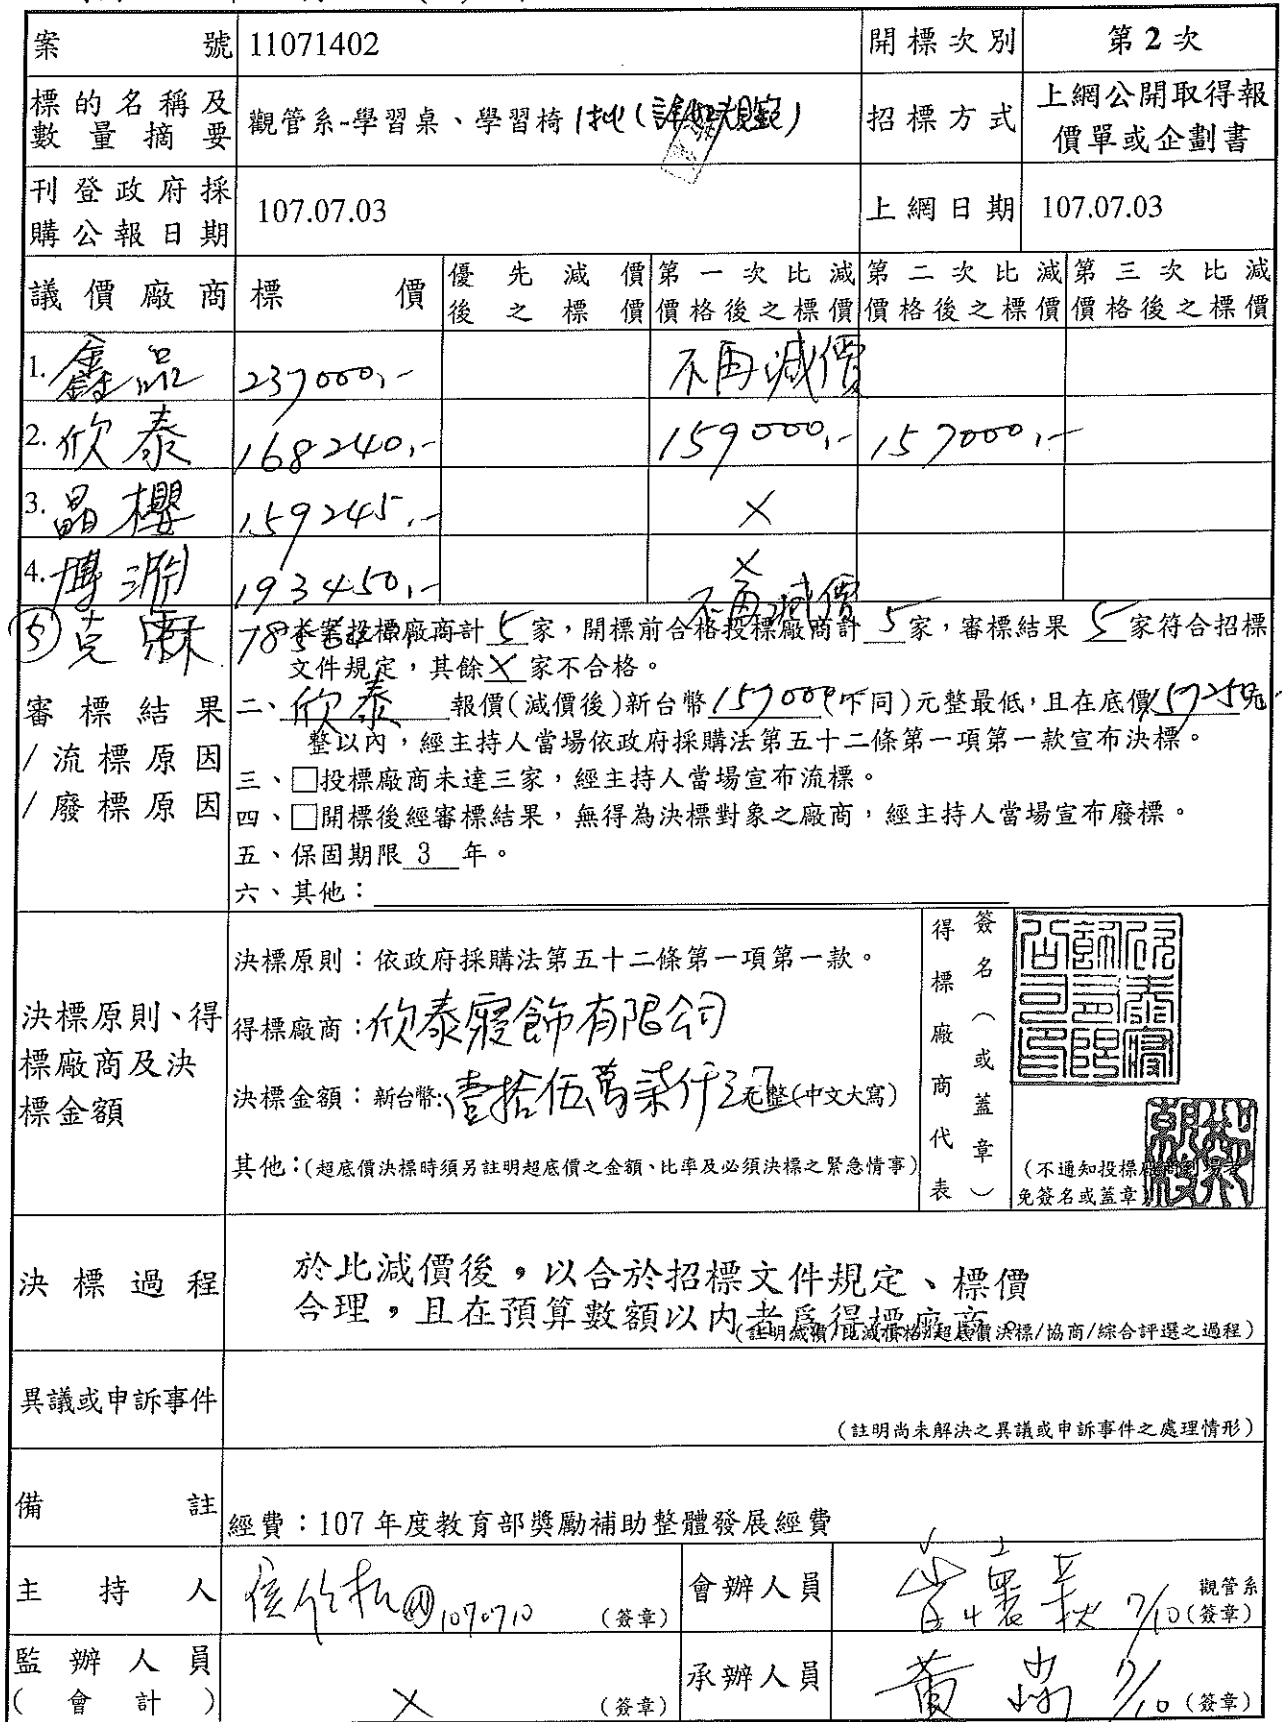 案號 11071402 開標次別 第2次
標的名稱及數量摘要 觀管系-學習桌、學習椅1批(詳如規範) 招標方式 上網公開取得報價單或企劃書
刊登政府採購公報日期 107.07.03 上網日期 107.07.03
議價廠商 標價 優先減價後之標價 第一次比減價格後之標價 第二次比減價格後之標價 第三次比減價格後之標價
1. 鑫品 237000,- 不再減價
2. 欣泰 168240,- 159000,- 157000,-
3. 晶櫻 159245,- X
4. 博 193450,- X
⑤ 克 不再減價
審標結果/流標原因/廢標原因
本案投標廠商計5家,開標前合格投標廠商計5家,審標結果5家符合招標
文件規定,其餘X家不合格。
二、欣泰報價(減價後)新台幣157000(下同)元整最低,且在底價157250元
整以內,經主持人當場依政府採購法第五十二條第一項第一款宣布決標。
三、□投標廠商未達三家,經主持人當場宣布流標。
四、□開標後經審標結果,無得為決標對象之廠商,經主持人當場宣布廢標。
五、保固期限 3 年。
六、其他:
決標原則、得標廠商及決標金額
決標原則:依政府採購法第五十二條第一項第一款。
得標廠商:欣泰寢飾有限公司
決標金額:新台幣:壹拾伍萬柒仟元整(中文大寫)
其他:(超底價決標時須另註明超底價之金額、比率及必須決標之緊急情事)
得標廠商代表簽名(或蓋章)
欣泰寢飾有限公司印
(不通知投標廠商到場者
免簽名或蓋章)
決標過程
於比減價後,以合於招標文件規定、標價
合理,且在預算數額以內者為得標廠商。
(註明減價/比減價格/超底價決標/協商/綜合評選之過程)
異議或申訴事件
(註明尚未解決之異議或申訴事件之處理情形)
備註 經費:107年度教育部獎勵補助整體發展經費
主持人 1070710 (簽章) 會辦人員 7/10 觀管系(簽章)
監辦人員(會計) X (簽章) 承辦人員 黃 7/10 (簽章)